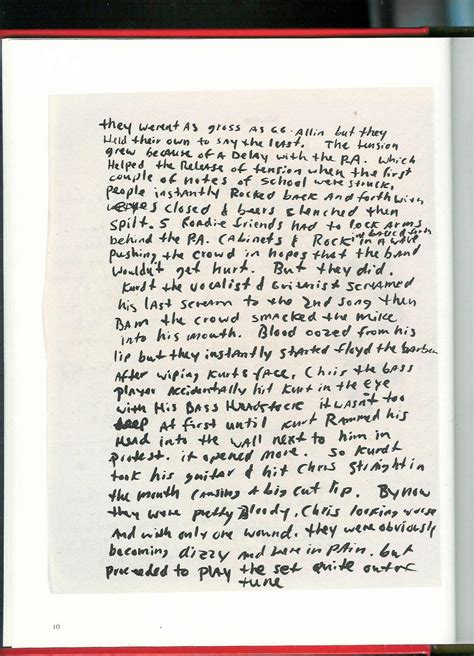 they werent As gross as G.G. Allin but they
Held their own to say the least. The tension
grew because of A Delay with the P.A. which
Helped the Release of tension when the first
couple of notes of School were struck,
people instantly Rocked back and forth with
eyes closed & beers clenched then
spilt. 5 Roadie friends had to lock arms
behind the P.A. cabinets & Rock back & forth in a wave
pushing the crowd in hopes that the band
wouldn't get hurt. But they did.
Kurdt the vocalist & Guitarist screamed
his last scream to the 2nd song then
BAM the crowd smacked the mike
into his mouth. Blood oozed from his
lip but they instantly started floyd the barber
After wiping Kurts face, Chris the bass
player Accidentally hit Kurt in the eye
with His BASS Headstock it wasn't too
deep at first until Kurt Rammed his
Head into the wall next to him in
protest. it opened more. So Kurdt
took his guitar & hit Chris straight in
the mouth causing A big cut lip. By now
they were pretty Bloody, Chris looking worse
And with only one wound. they were obviously
becoming dizzy and were in pain. but
proceeded to play the set quite out of
tune
10